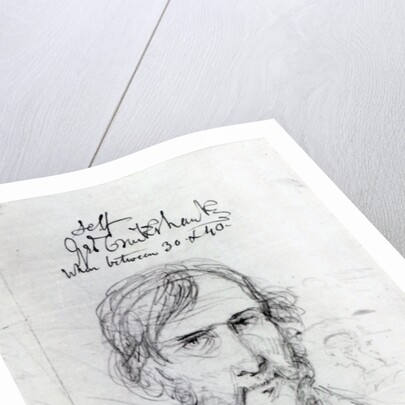 Self
Geo Cruikshank
when between 30 & 40-